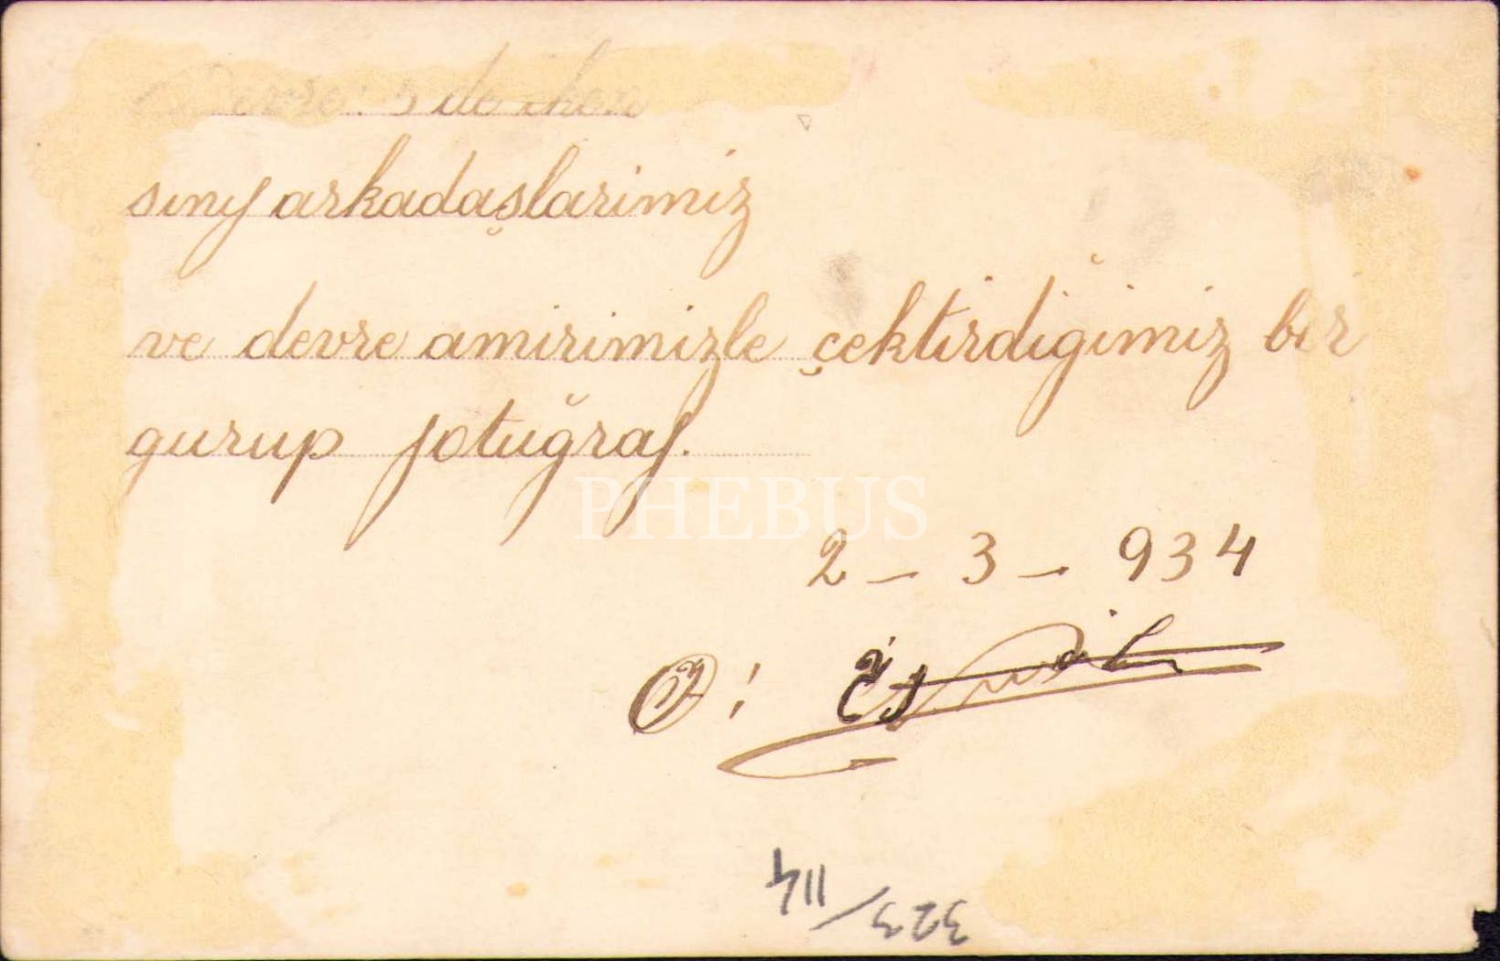 Devre: 5 de iken
sınıf arkadaşlarimiz
ve devre amirimizle çektirdiğimiz bir
gurup fotuğraf.
PHEBUS
2 - 3 - 934
323/114